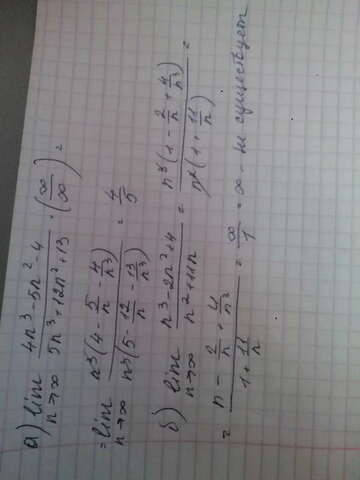 а) lim n→∞ (4n³-5n²-4)/(5n³+12n²+13) · (∞/∞) =
= lim n→∞ n³(4 - 5/n - 4/n³)/n³(5 - 12/n - 13/n³) = 4/5
б) lim n→∞ (n³-2n²+4)/(n²+11n) = n³(1 - 2/n + 4/n³)/n²(1 + 11/n) =
= (n - 2/n + 4/n²)/(1 + 11/n) = ∞/1 = ∞ - не существует